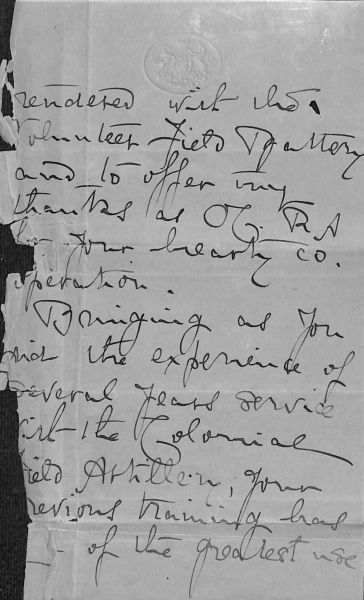 rendered with the
Volunteer Field Battery
and to offer my
thanks as O.C. R.A
for your hearty co.
operation.
Bringing as you
did the experience of
several years service
with the Colonial
Field Artillery, your
previous training has
of the greatest use